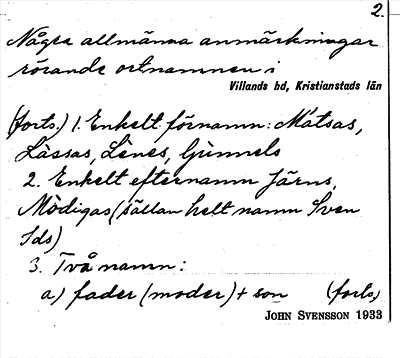 2.
Några allmänna anmärkningar
rörande ortnamnen i
Villands hd, Kristianstads län
(forts.) 1. Enkelt förnamn: Måtsas,
Lassas, Lènes, Gùnnels
2. Enkelt efternamn Järns,
Mòdigas (sällan helt namn Sven
Ids)
3. Två namn:
a) fader (moder) + son (forts.)
JOHN SVENSSON 1933